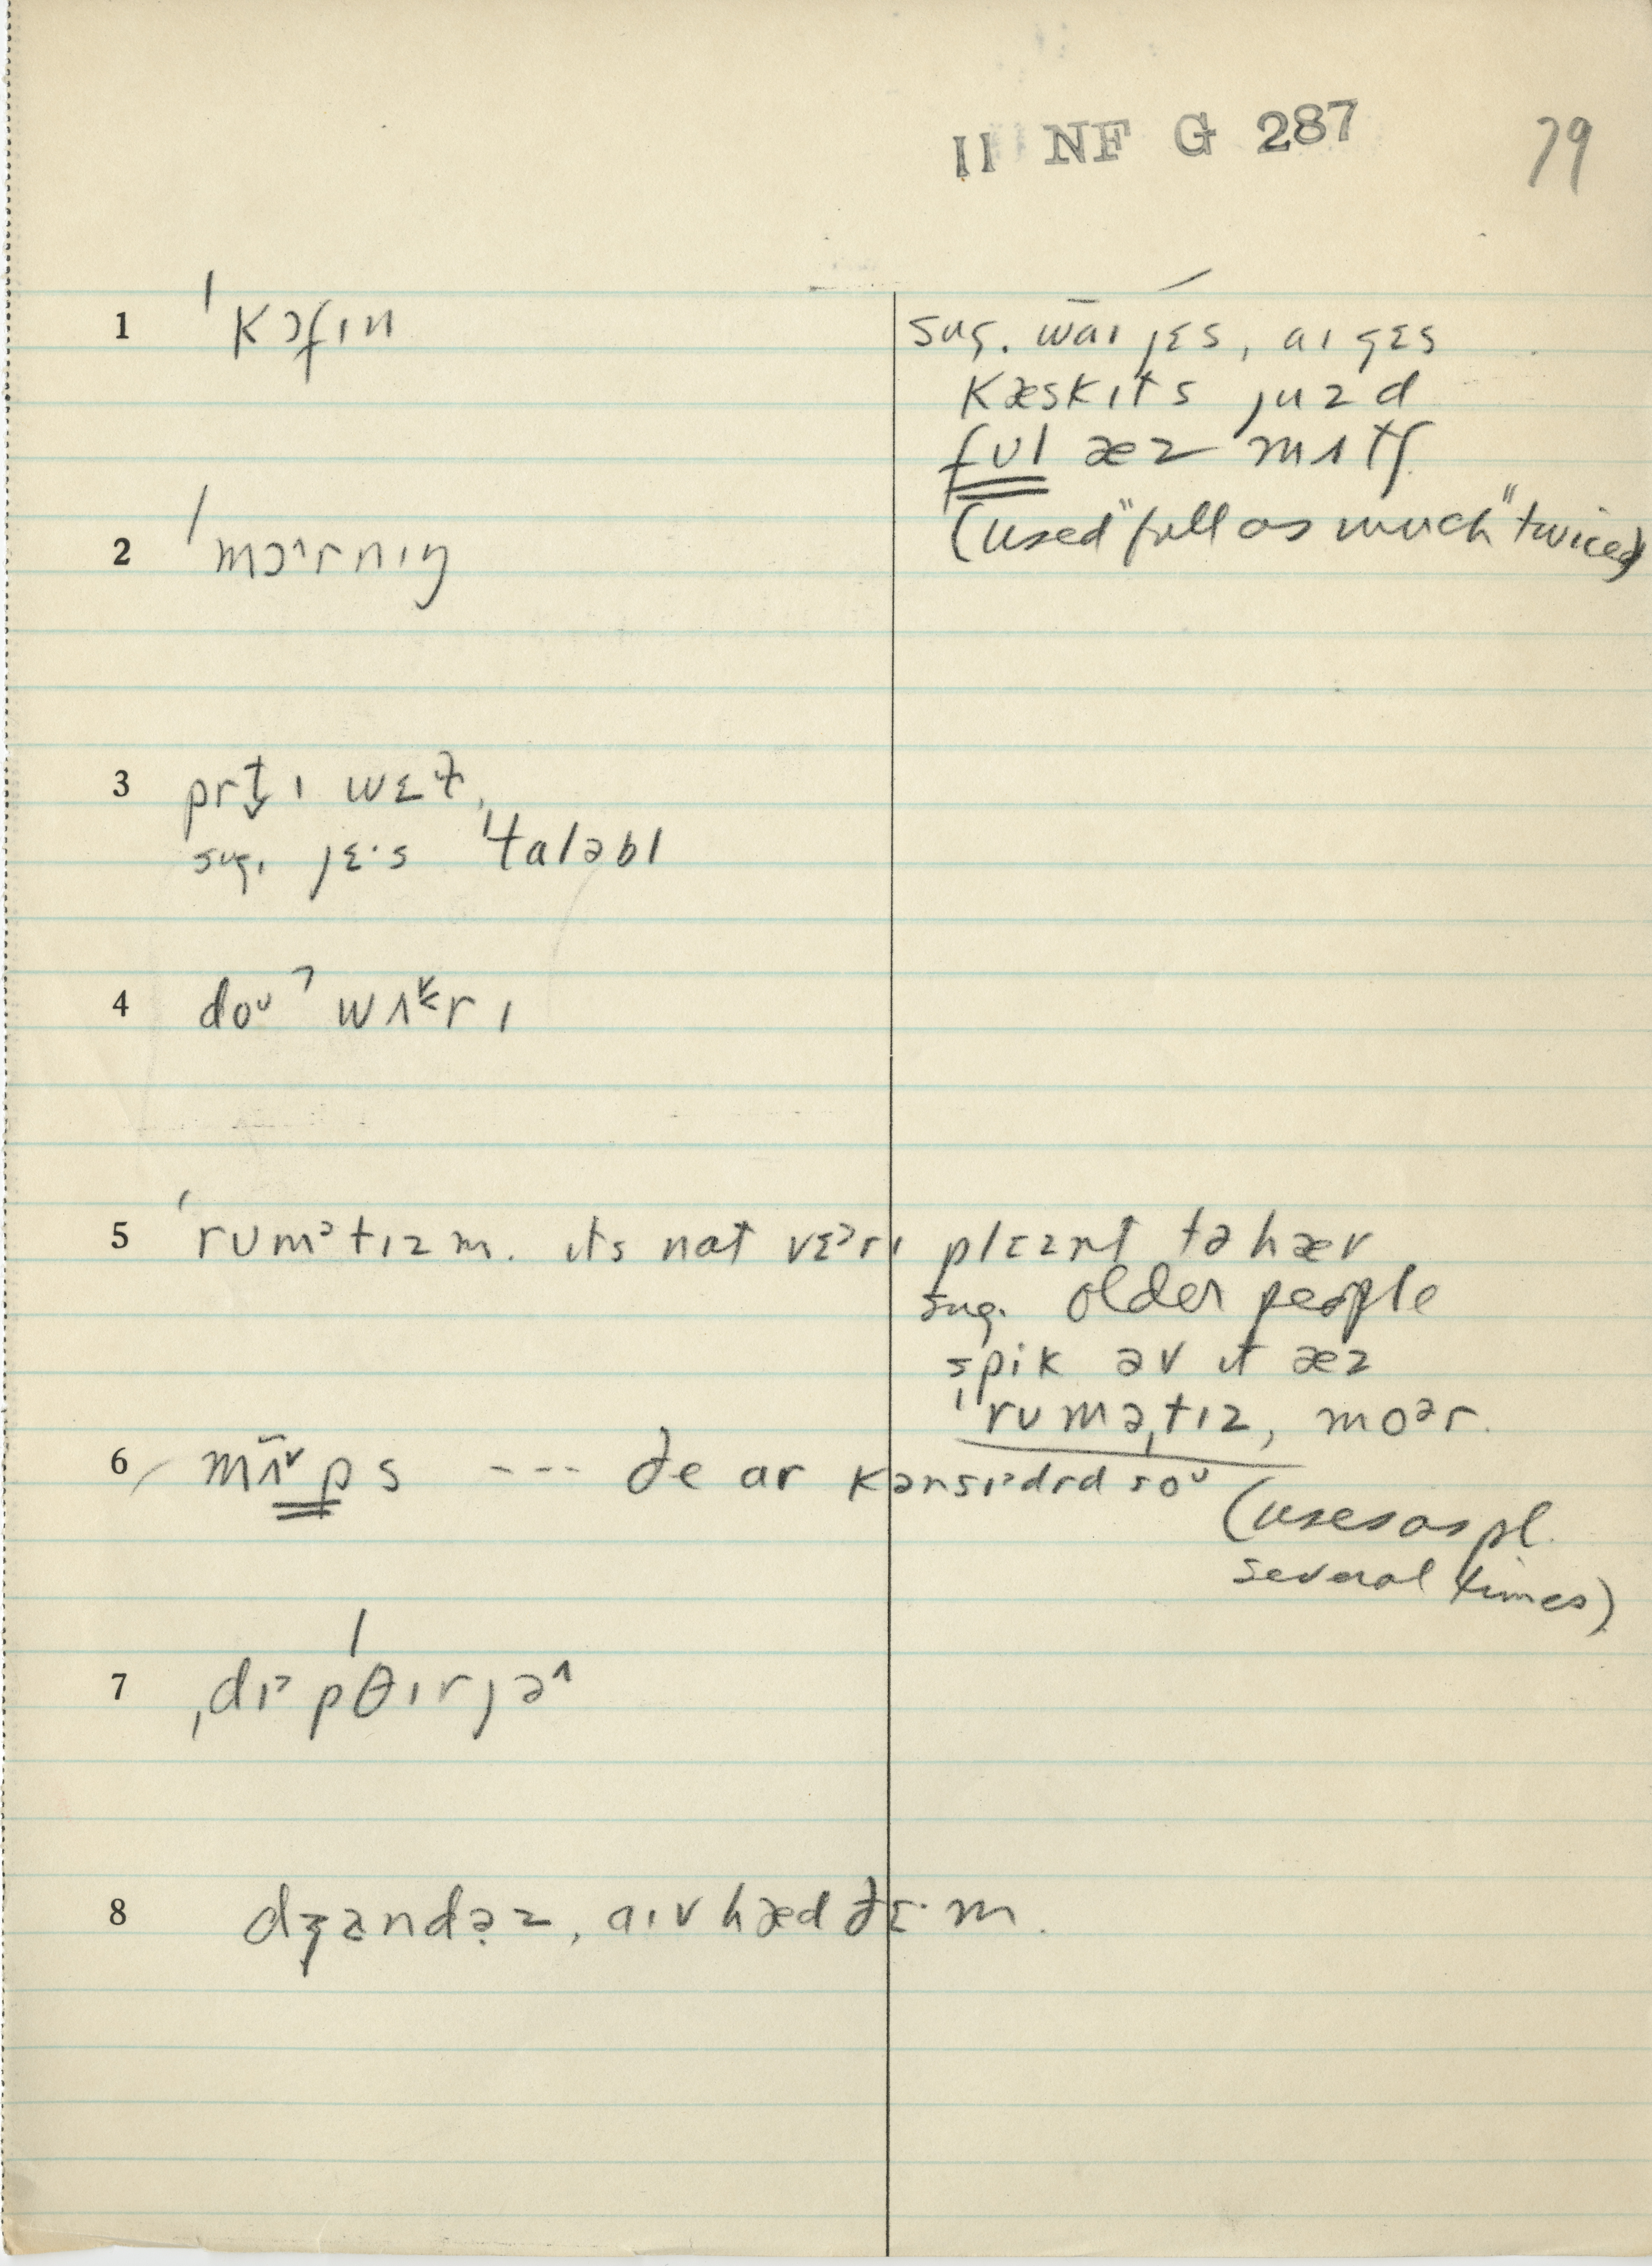 II NF G 287 79
1 ˈkɔfɪn
sug. wāɪ jɛs, aɪ gɛs
kæskɪts juzd
fʊl æz mʌtʃ
(used "full as much" twice)
2 ˈmɔ^rnɪŋ
3 prt̬ɪ wɛɫ,
sug. jɛ·s ˈtɑləbl
4 doᶷ ˀ wʌ˂rɪ
5 ˈrʊmᵊtɪzm. ɪts nat vɛᵊrɪ plɛznt tə hæv
sug. older people
spik əv ɪt æz
ˈrʊməˌtɪz, moᵊr.
6 mʌ̄ᵛps --- ðe ar kənsɪᵊdrd soᶷ
(uses as pl.
several times)
7 ˌdɪᵊpˈθɪrjə^
8 dʒændəz, aɪv hæd ðɛ·m.